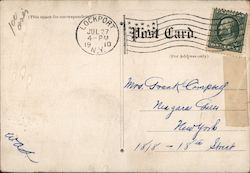 (This space for correspondence)
LOCKPORT
JUL 27
4 - PM
1910
N.Y.
Post Card.
(For Address only)
Mrs. Frank Campbell
Niagara Falls
New York
1818 - 18th Street